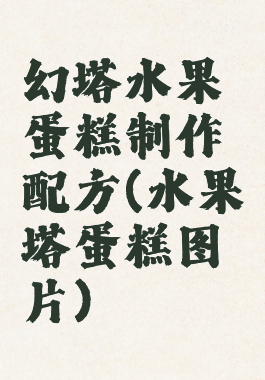 幻塔水果
蛋糕制作
配方(水果
塔蛋糕图
片)